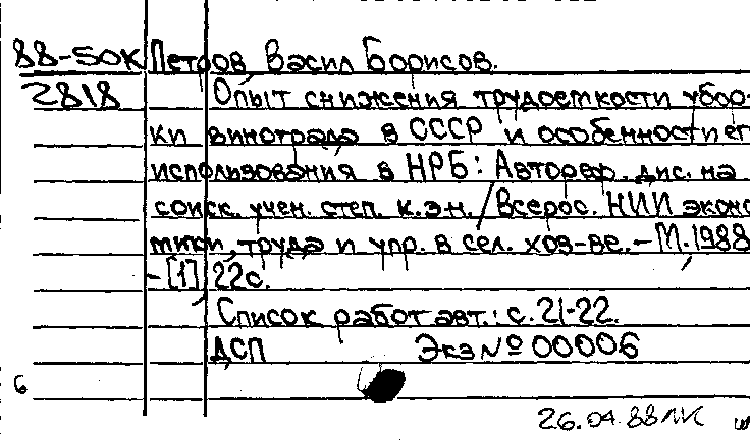 88-50К Петров Васил Борисов.
2818 Опыт снижения трудоемкости убор-
ки винограда в СССР и особенности ег
использования в НРБ: Автореф. дис. на
соиск. учен. степ. к.э.н. / Всерос. НИИ эконо
мики, труда и упр. в сел. хоз-ве. - М., 1988
- [1], 22с.
Список работ авт.: с. 21-22.
ДСП Экз № 00006
6
26.04.88